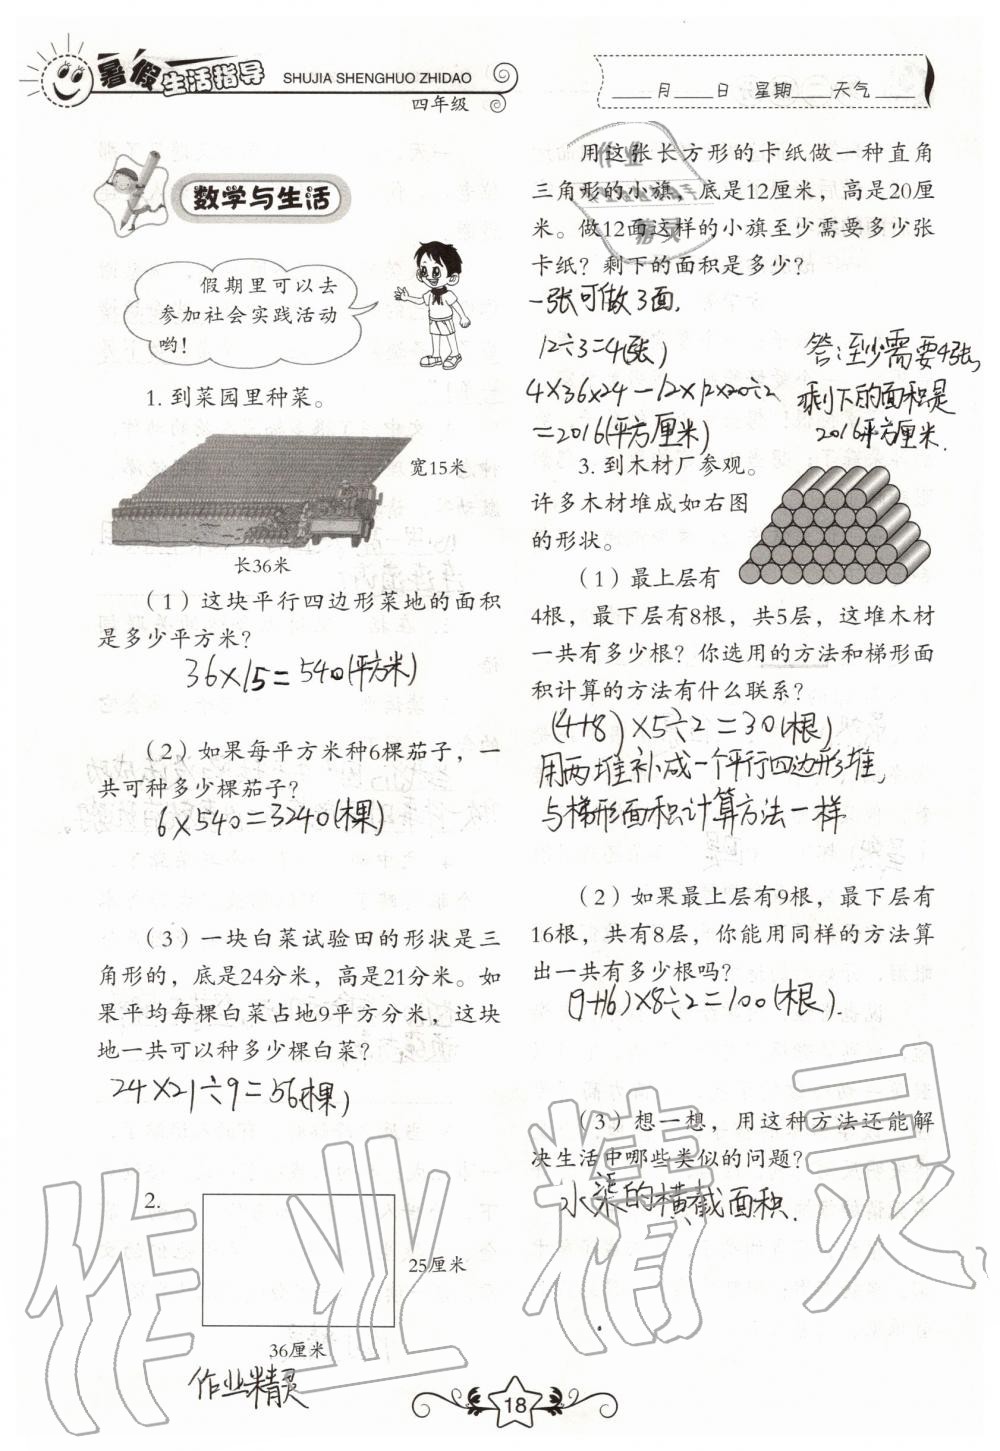 暑假生活指导
SHUJIA SHENGHUO ZHIDAO
四年级
月 日 星期 天气
数学与生活
假期里可以去
参加社会实践活动
哟!
1. 到菜园里种菜。
宽15米
长36米
(1)这块平行四边形菜地的面积
是多少平方米?
36×15=540(平方米)
(2)如果每平方米种6棵茄子,一
共可种多少棵茄子?
6×540=3240(棵)
(3)一块白菜试验田的形状是三
角形的,底是24分米,高是21分米。如
果平均每棵白菜占地9平方分米,这块
地一共可以种多少棵白菜?
24×21÷9=56(棵)
2.
25厘米
36厘米
作业精灵
用这张长方形的卡纸做一种直角
三角形的小旗,底是12厘米,高是20厘
米。做12面这样的小旗至少需要多少张
卡纸?剩下的面积是多少?
一张可做3面.
12÷3=4(张)
4×36×24-12×12×20÷2
=2016(平方厘米)
答:至少需要4张,
剩下的面积是
2016平方厘米.
3. 到木材厂参观。
许多木材堆成如右图
的形状。
(1)最上层有
4根,最下层有8根,共5层,这堆木材
一共有多少根?你选用的方法和梯形面
积计算的方法有什么联系?
(4+8)×5÷2=30(根)
用两堆补成一个平行四边形堆,
与梯形面积计算方法一样
(2)如果最上层有9根,最下层有
16根,共有8层,你能用同样的方法算
出一共有多少根吗?
(9+16)×8÷2=100(根).
(3)想一想,用这种方法还能解
决生活中哪些类似的问题?
水渠的横截面积.
作业精灵
18